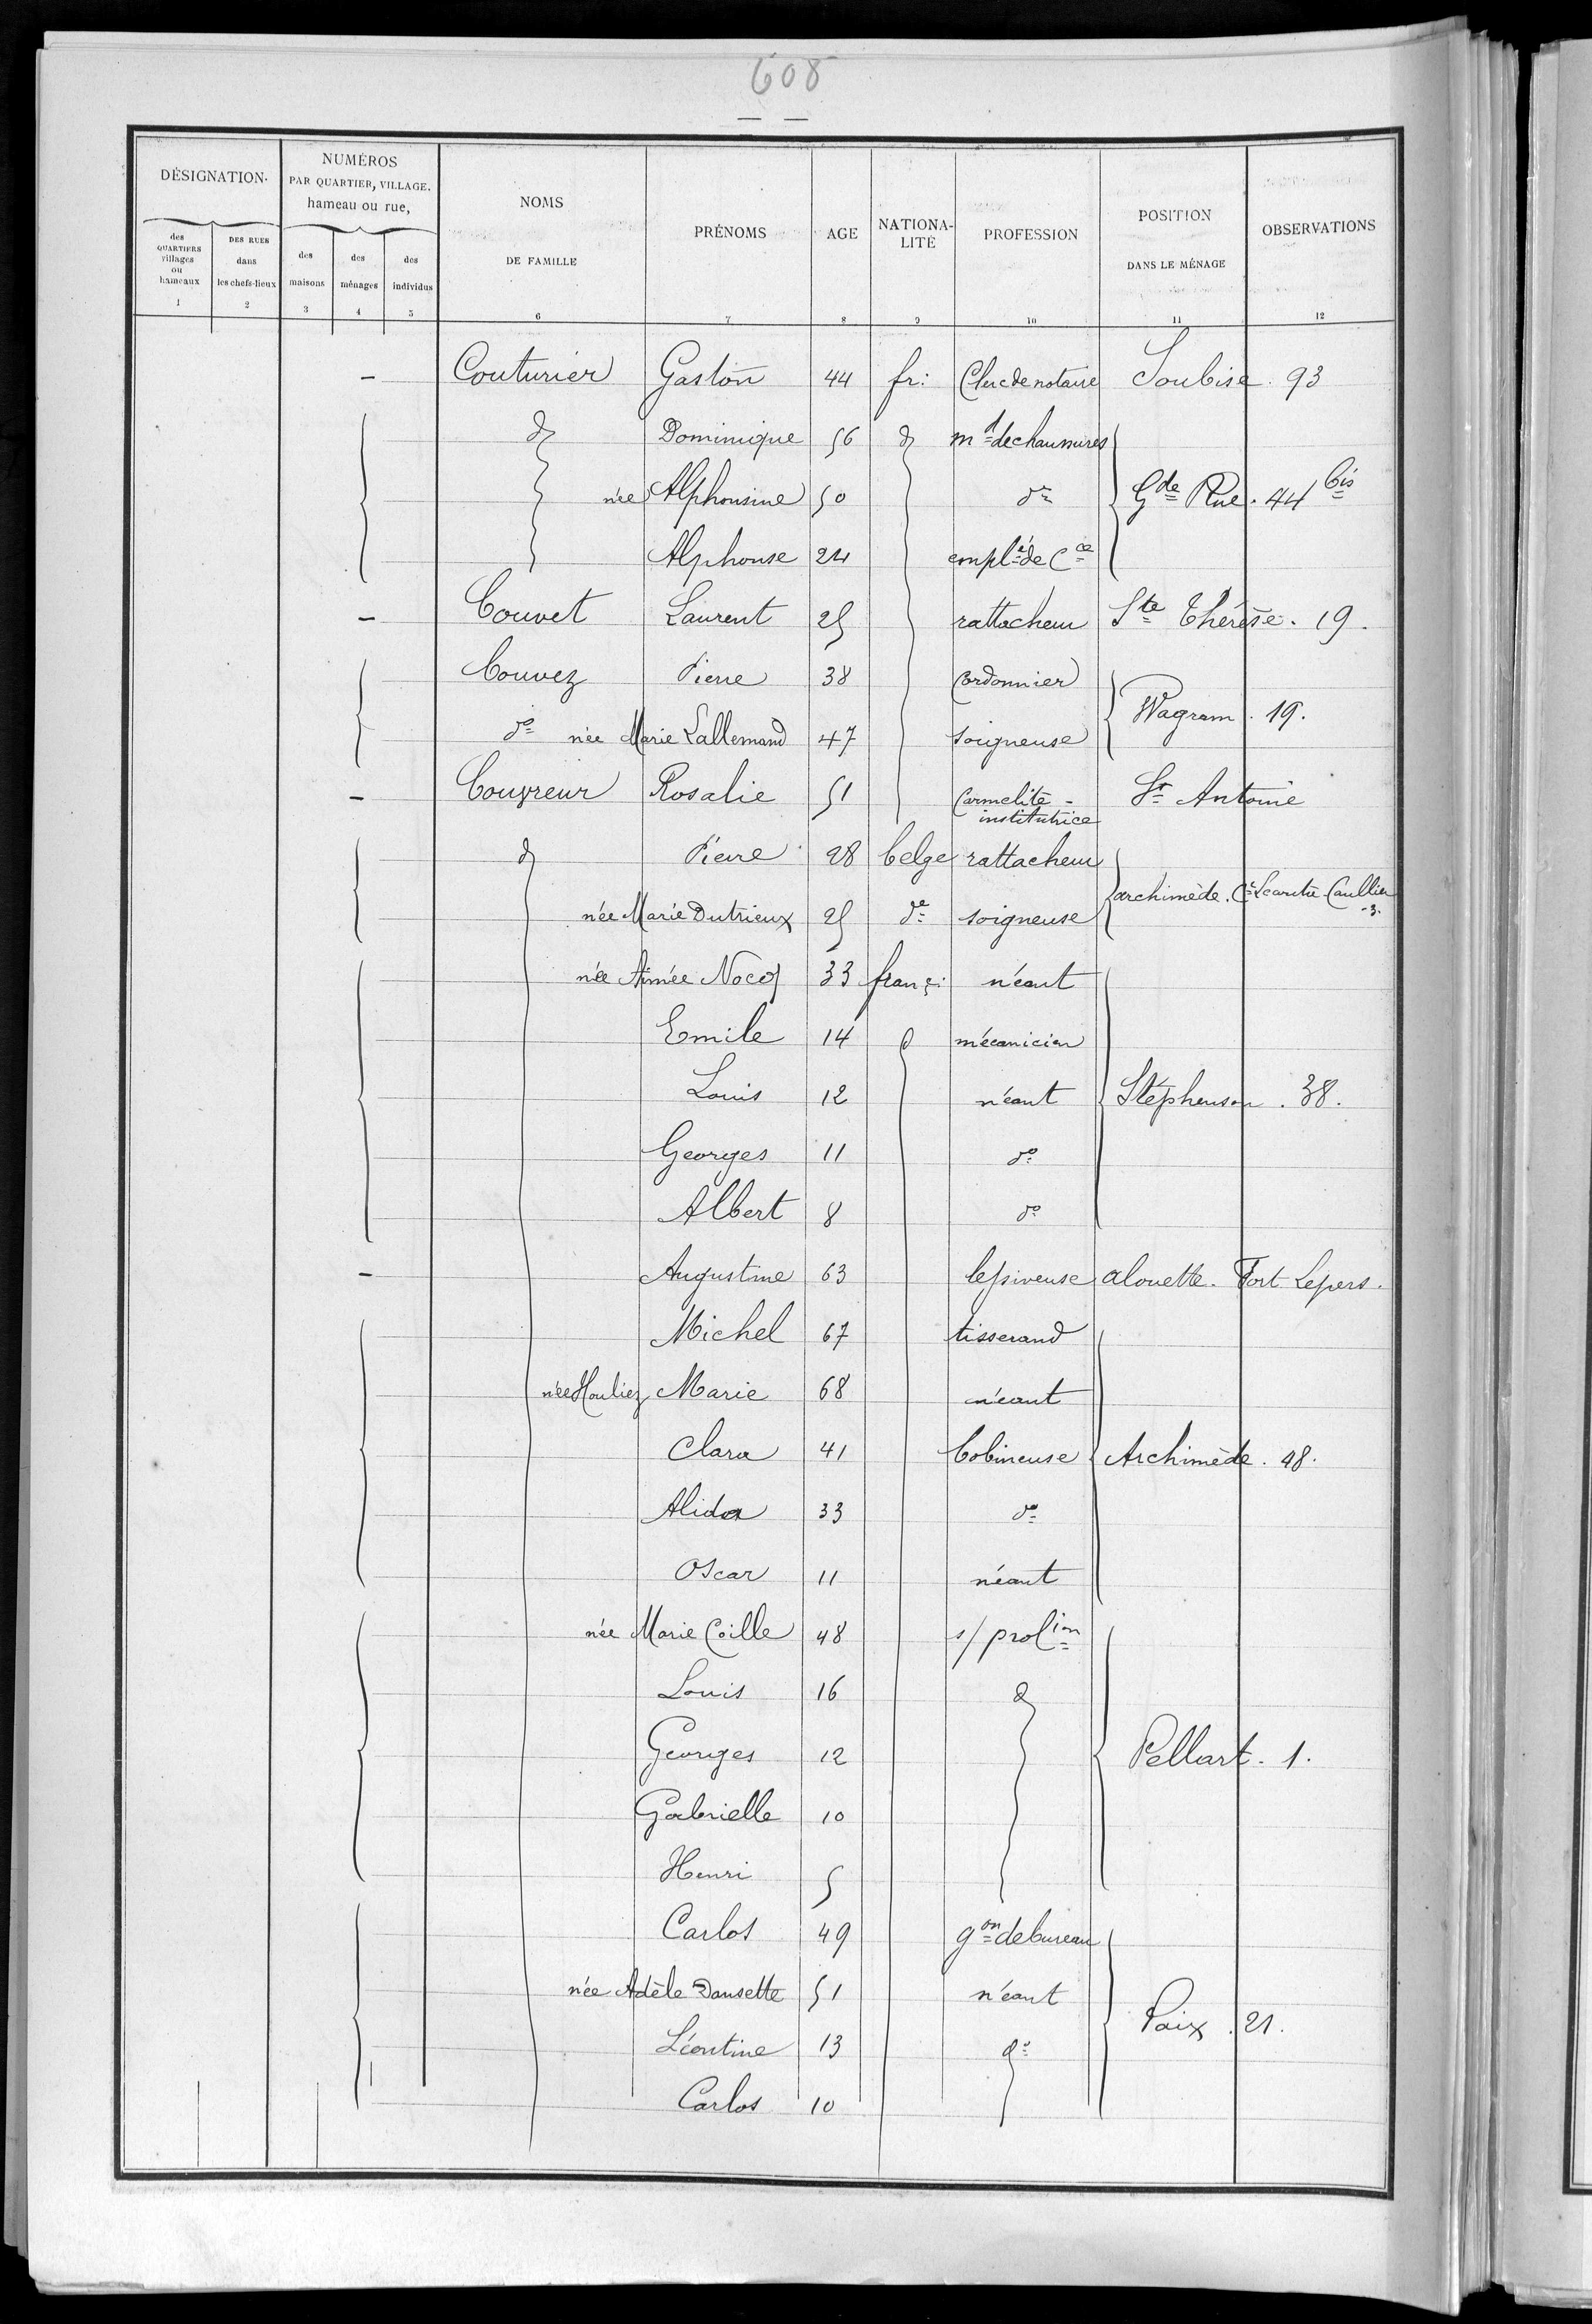 608
DÉSIGNATION.
NUMÉROS
PAR QUARTIER, VILLAGE.
hameau ou rue,
NOMS
DE FAMILLE
PRÉNOMS
AGE
NATIONA-
LITÉ
PROFESSION
POSITION
DANS LE MÉNAGE
OBSERVATIONS
des
QUARTIERS
villages
ou
hameaux
DES RUES
dans
les chefs-lieux
des
maisons
des
ménages
des
individus
1 2 3 4 5 6 7 8 9 10 11 12
- Couturier Gaston 44 fr: Clerc de notaire Soubise. 93
d Dominique 56 d md de chaussures
née Alphonsine 50 do Gde Rue. 44 bis
Alphonse 24 emplé de Cce
- Couvet Laurent 25 rattacheur Ste Thérèse. 19.
Couvez Pierre 38 Cordonnier
Wagram. 19.
do née Marie Lallemand 47 soigneuse
- Couvreur Rosalie 51 Carmelite - St Antoine
institutrice
d Pierre 28 belge rattacheur
archimède. Cé Caullier
-3.
née Marie Dutrieux 25 do soigneuse
née Aimée Nocq 33 franç: néant
Emile 14 d mécanicien
Louis 12 néant Stéphenson. 38.
Georges 11 do
Albert 8 do
- Augustine 63 lessiveuse alouette. Fort Lepers.
Michel 67 tisserand
née Houliez Marie 68 néant
Clara 41 bobineuse Archimède. 48.
Alida 33 do
Oscar 11 néant
née Marie Coille 48 s/ profion
Louis 16 d
Georges 12 Pellart. 1.
Gabrielle 10
Henri 5
Carlos 49 gon de bureau
née Adèle Dansette 51 néant
Paix. 21.
Léontine 13 do
Carlos 10